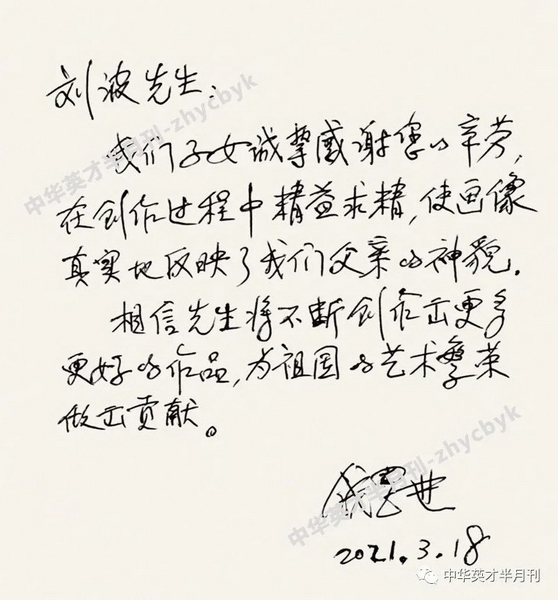 刘波先生：
我们子女诚挚感谢您的辛劳，
在创作过程中精益求精，使画像
真实地反映了我们父亲的神貌.
相信先生将不断创作出更多
更好的作品，为祖国的艺术繁荣
做出贡献。
2021.3.18
中华英才半月刊-zhycbyk
中华英才半月刊-zhycbyk
中华英才半月刊